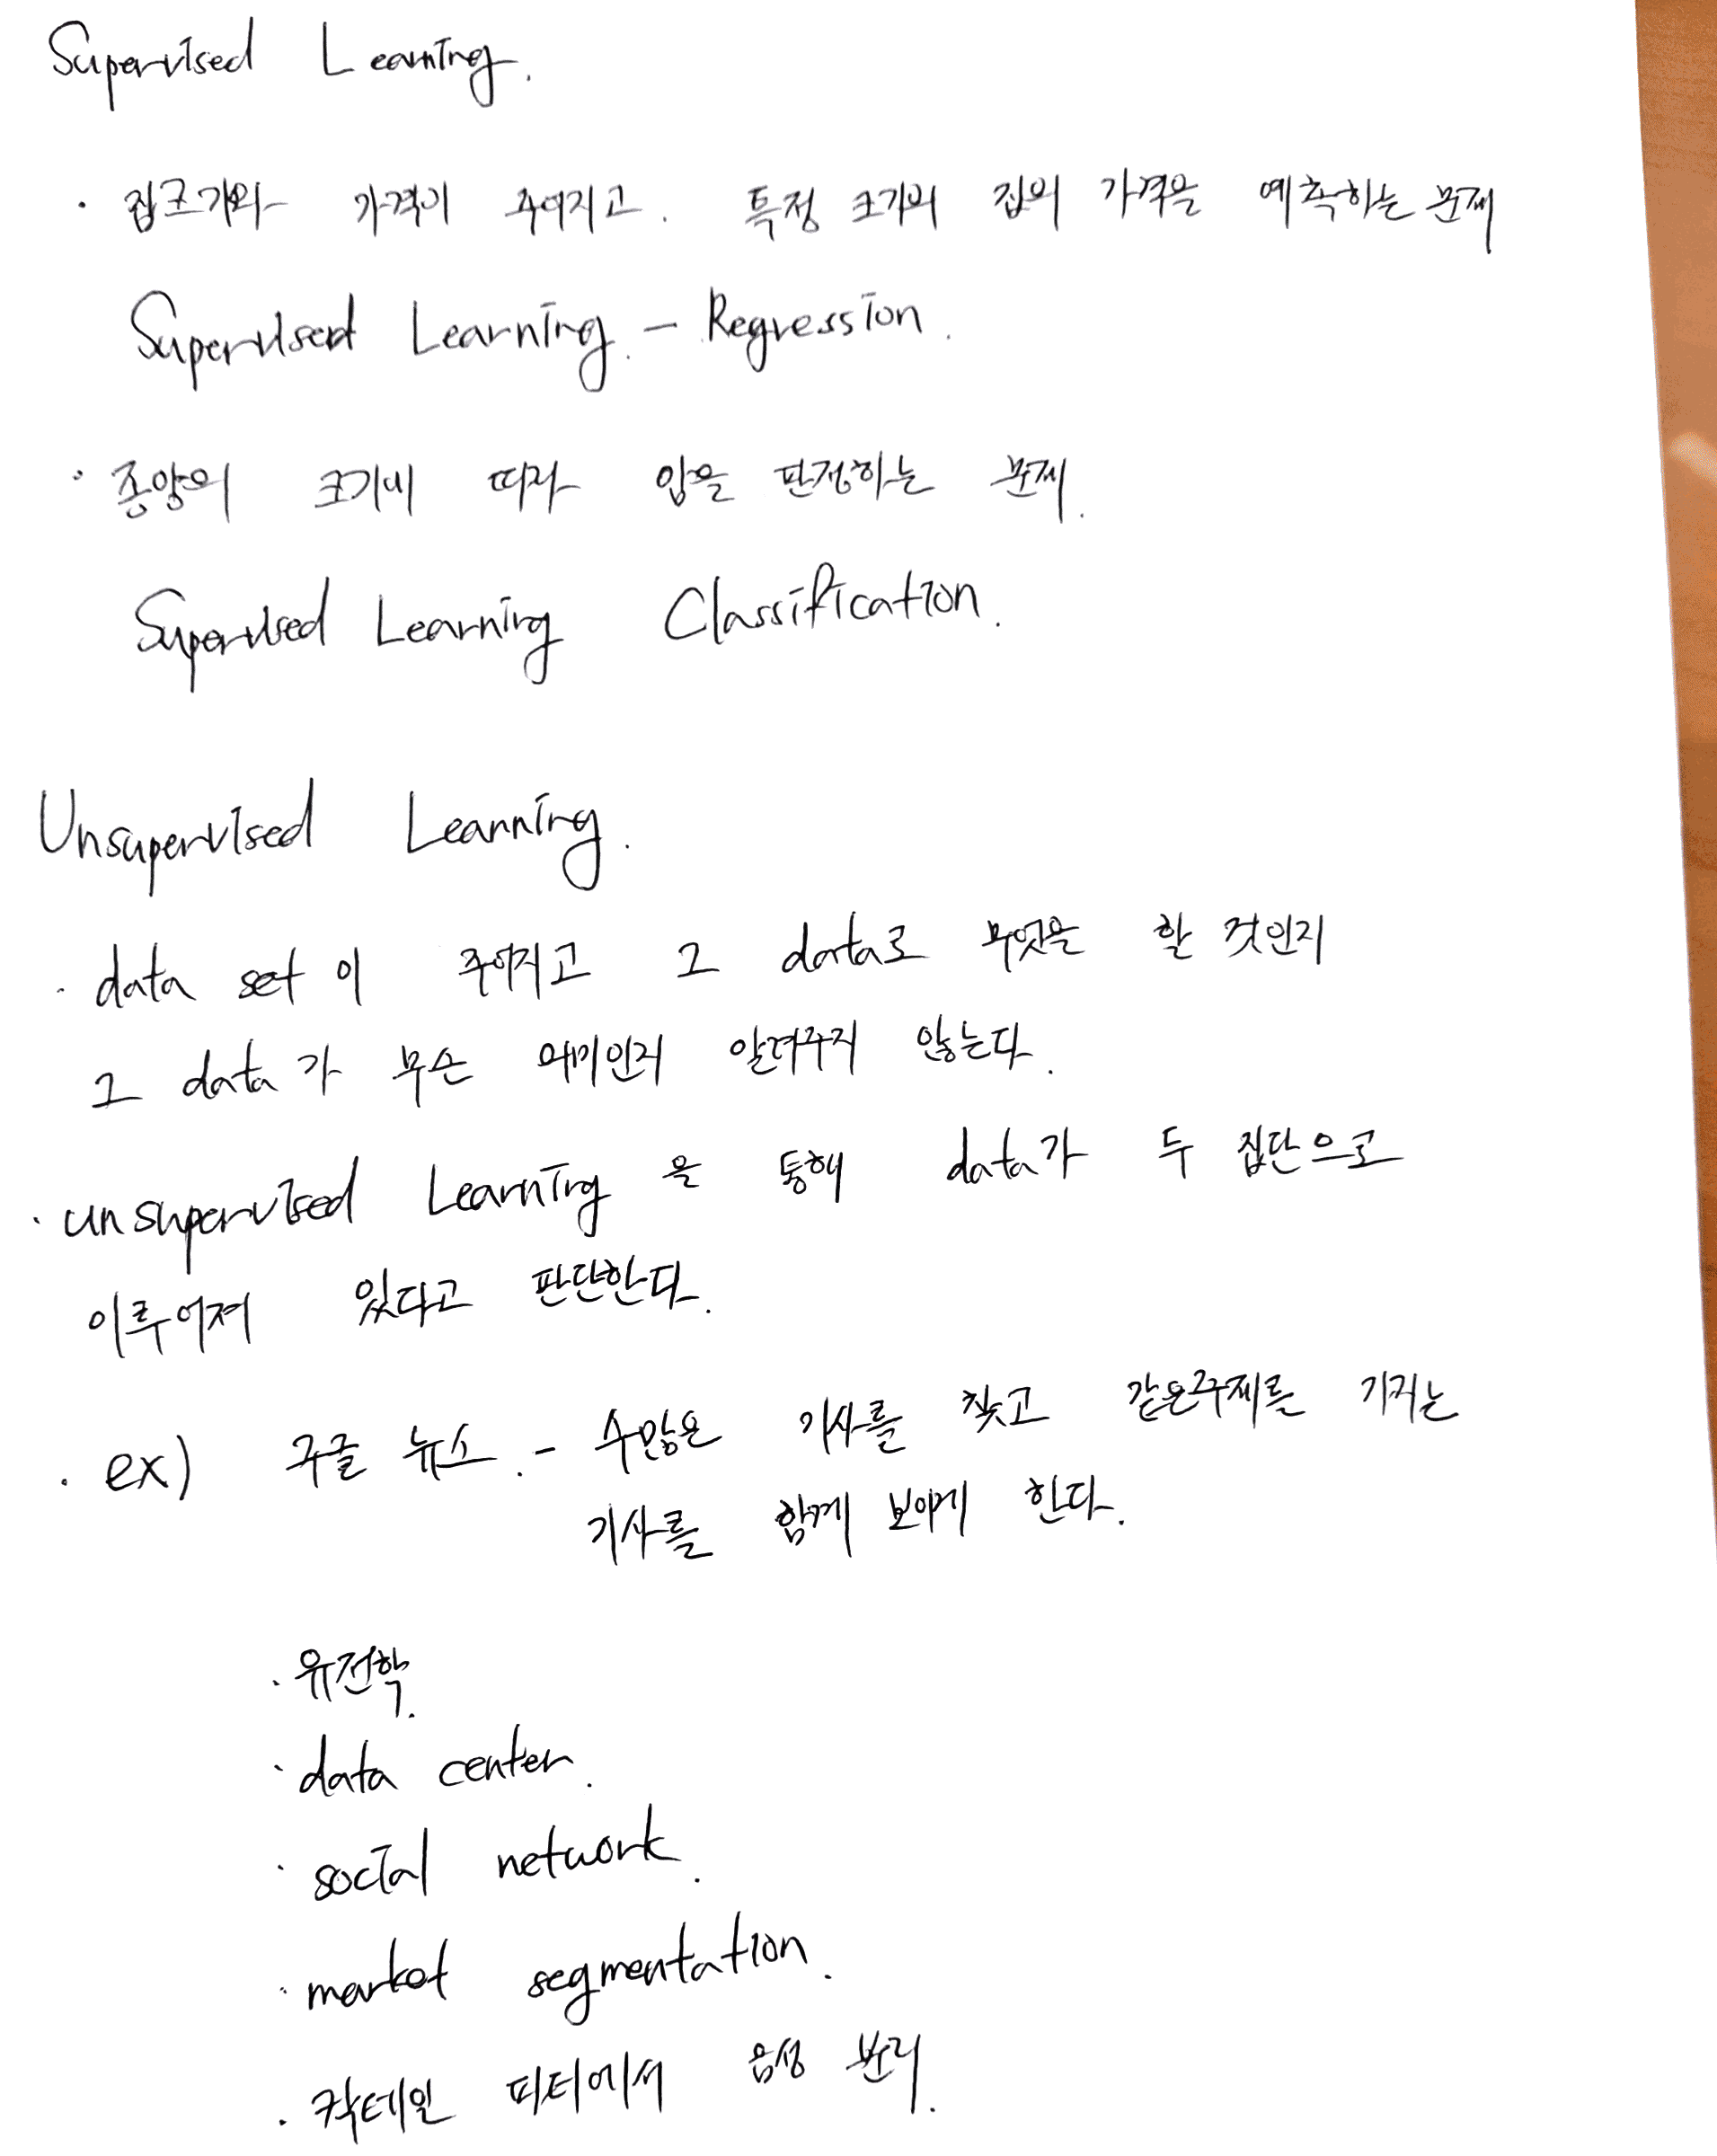 Supervised Learning.
· 집크기와 가격이 주어지고. 특정 크기의 집의 가격을 예측하는 문제
Supervised Learning. - Regression.
· 종양의 크기에 따라 암을 판정하는 문제.
Supervised Learning Classification.
Unsupervised Learning.
· data set이 주어지고 그 data로 무엇을 할 것인지
그 data가 무슨 의미인지 알려주지 않는다.
· unsupervised Learning을 통해 data가 두 집단으로
이루어져 있다고 판단한다.
· ex) 구글 뉴스. - 수많은 기사를 찾고 같은주제를 가지는
기사를 함께 보이게 한다.
· 유전학.
· data center.
· social network.
· market segmentation.
· 칵테일 파티에서 음성 분리.